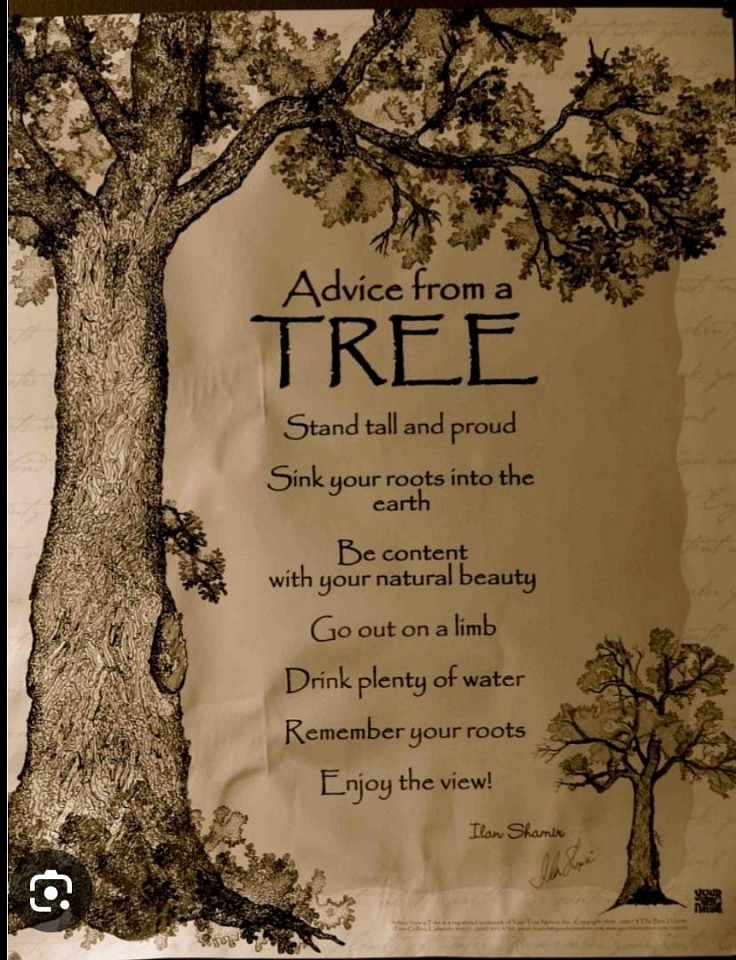 Advice from a
TREE
Stand tall and proud
Sink your roots into the
earth
Be content
with your natural beauty
Go out on a limb
Drink plenty of water
Remember your roots
Enjoy the view!
Ilan Shamir
YOUR
TRUE
NATURE